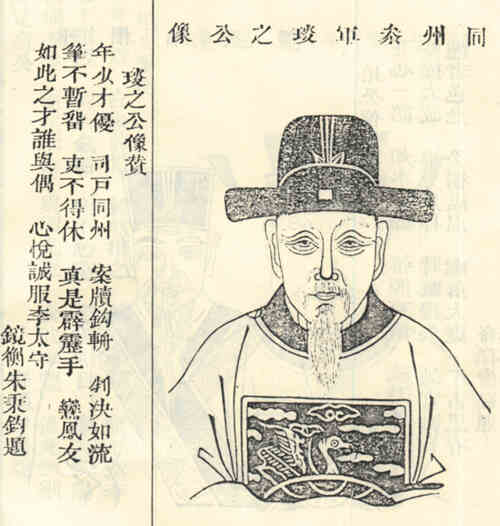 同州叅軍琰之公像
琰之公像贊
年少才優 司戶同州 案牘鈎輈 判决如流
筆不暫畱 吏不得休 真是霹靂手 鸞鳳友
如此之才誰與偶 心悅誠服李太守
鏡衡朱秉鈞題